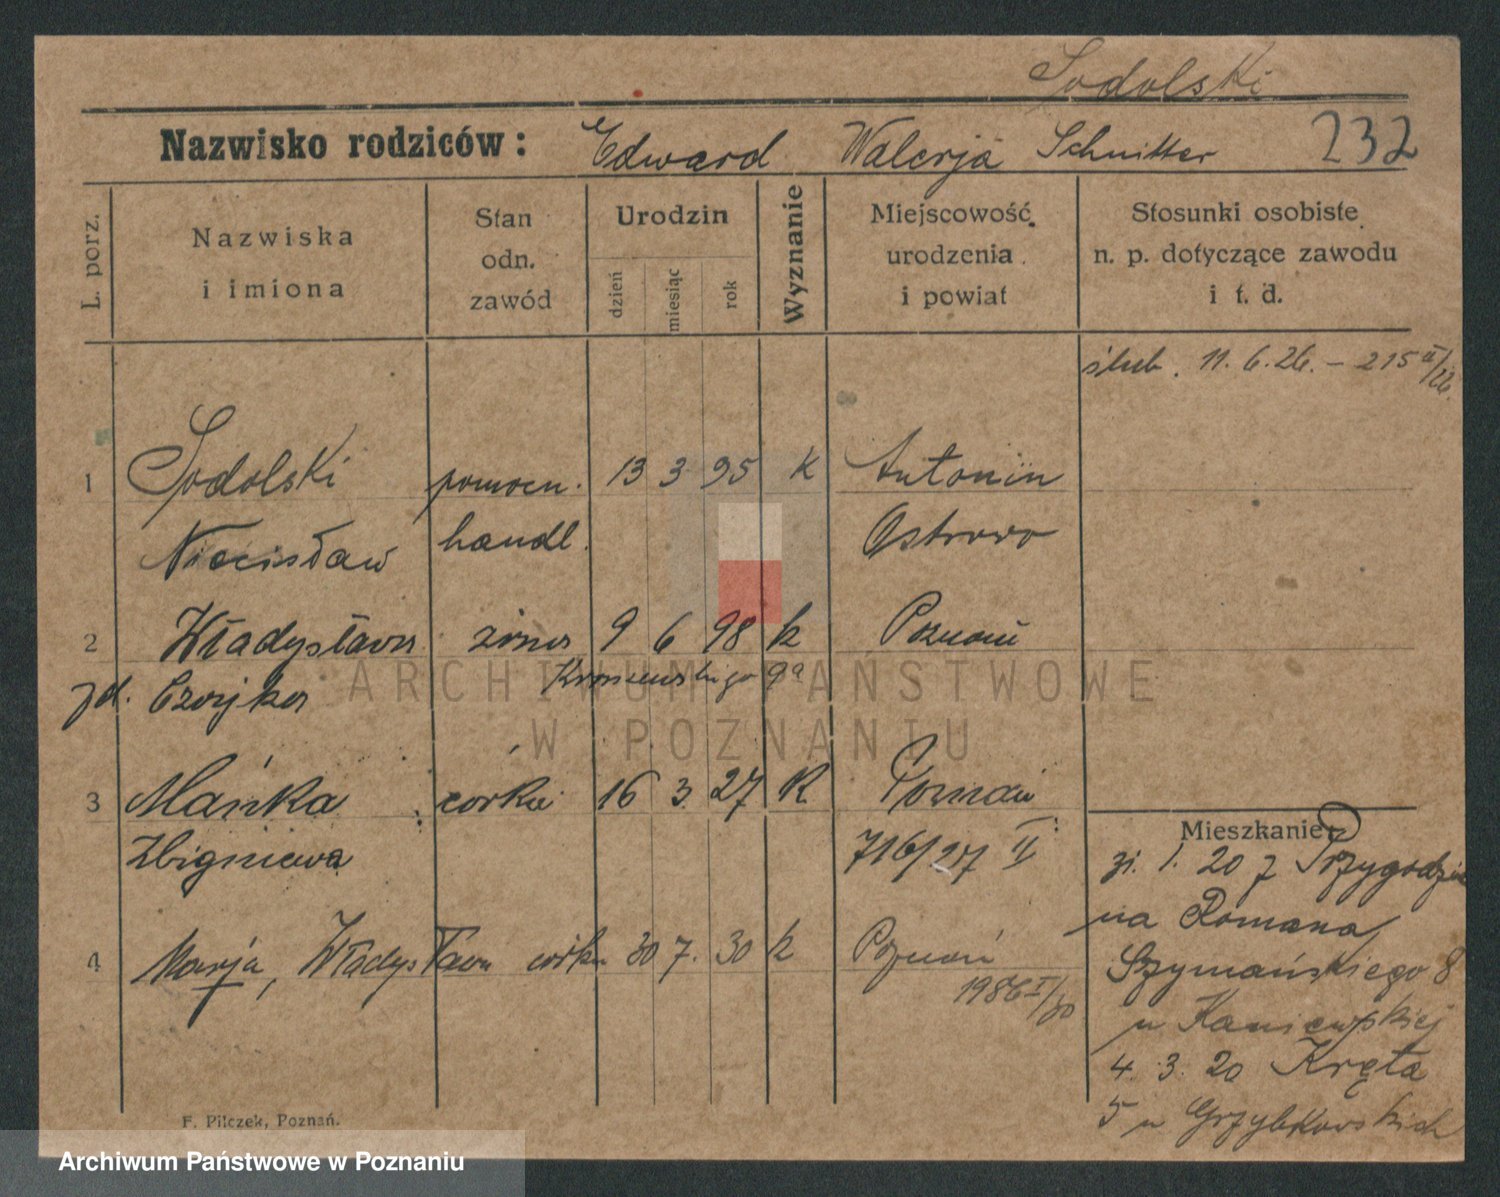 Sodolski
Nazwisko rodziców: Edward Walerja Schnitter 232
L. porz.
Nazwiska
i imiona
Stan
odn.
zawód
Urodzin
dzień
miesiąc
rok
Wyznanie
Miejscowość
urodzenia
i powiat
Stosunki osobiste
n. p. dotyczące zawodu
i t. d.
ślub. 11.6.26. – 215 II/26
1 Sodolski pomocn. 13 3 95 K Antonin
Mieczysław handl. Ostrowo
2 Władysława żona 9 6 98 k Poznań
zd. Czajka 9a
3 Mańka córka 16 3 27 K Poznań
Zbigniewa 716/27 II
4 Marja, Władysława córka 30 7. 30 k Poznań
1986 I/30
Mieszkanie
1. 20 z Przygodzic
na Romana
Szymańskiego 8
u Kaniewskiej
4. 3. 20 Kręta
5 u Grzybkowskich
F. Pilczek, Poznań.
ARCHIWUM PAŃSTWOWE
W POZNANIU
Archiwum Państwowe w Poznaniu